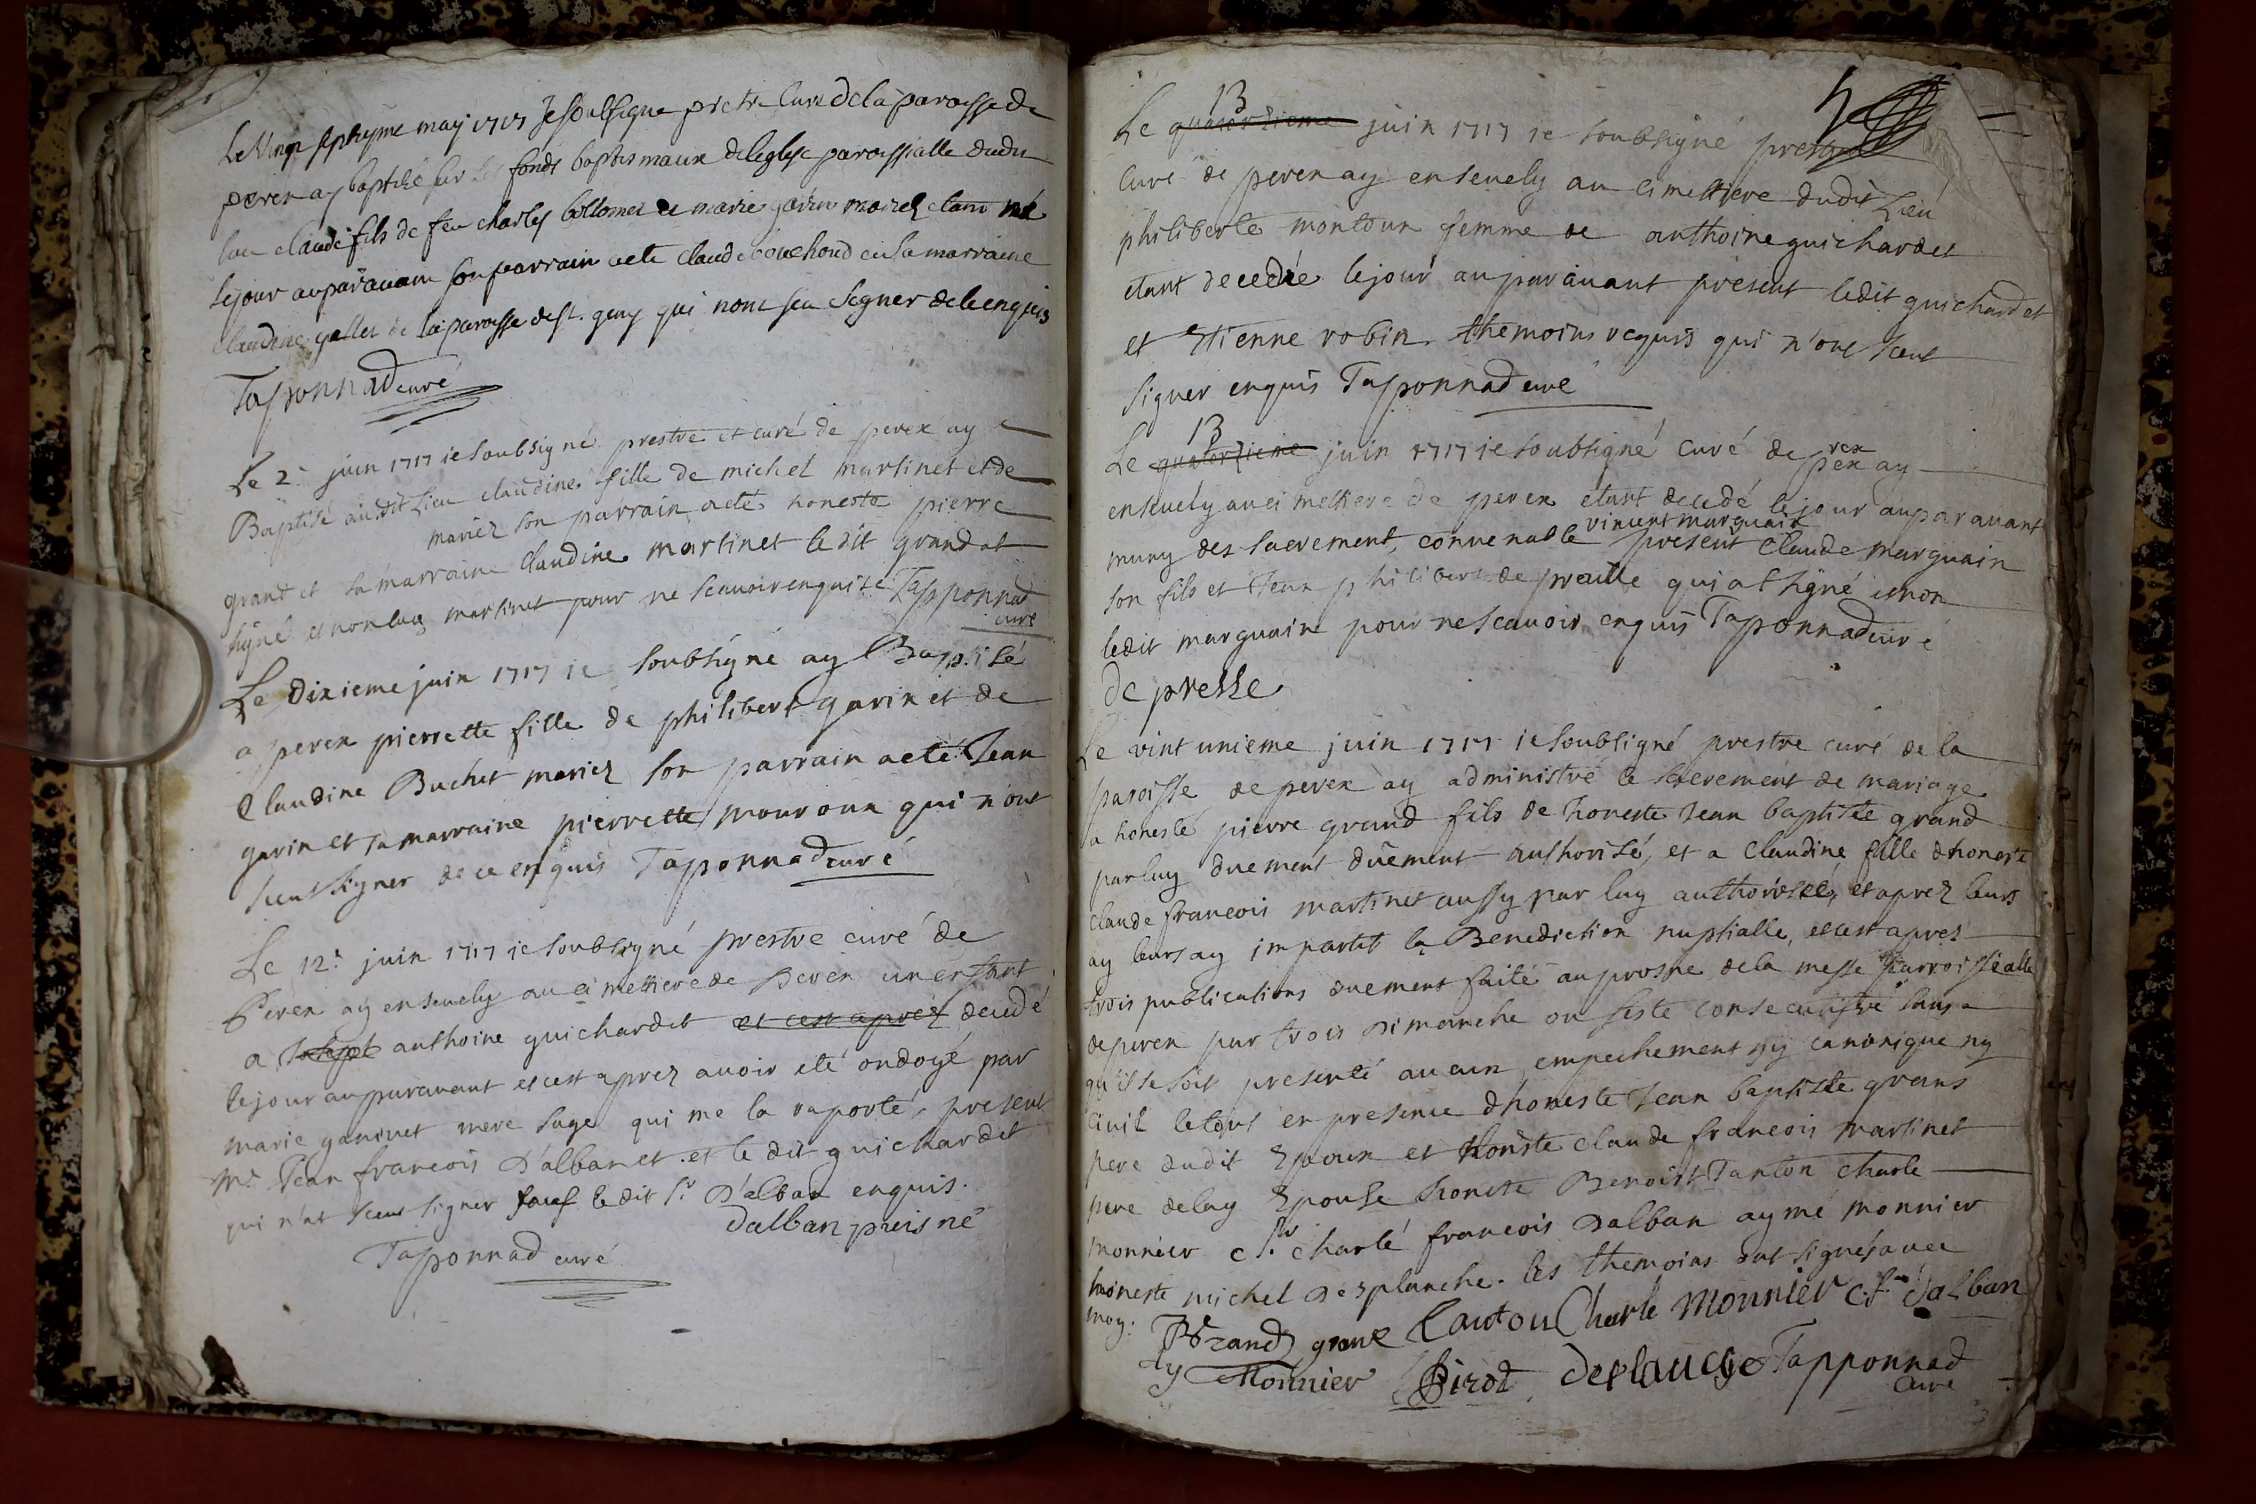 Le Vingt septiyme may 1717 Je soulsigne pretre Curé de la paroisse de
perex ay baptisé sur les fonds baptismaux de leglise paroissialle dudit
lieu claude fils de feu charles et marie gavin mariez etant né
le jour auparavant son parrain a ete claude bouchoud et sa marraine
claudine gallet de la paroisse de st. geny qui nont sceu signer de ce enquis
Tapponnad curé
Le 2e juin 1717 ie soubsigné prestre et curé de perex ay
Baptisé au dit Lieu claudine fille de michel martinet et de
mariez son parrain a eté honeste pierre
grand et sa marraine Claudine martinet le dit grand at
signé et non la martinet pour ne scavoir enquise Tapponnad
curé
Le dixieme juin 1717 ie soubsigné ay Baptisé
a perex pierrette fille de philibert gavin et de
Claudine Buchet mariez son parrain a eté Jean
gavin et sa marraine pierrette mouroux qui n'ont
sceut signer de ce enquis Taponnad curé
Le 12e juin 1717 ie soubsigné prestre curé de
Perex ay ensevely au cimettiere de Perex un enfant
a Joseph anthoine guichardet et cest aprez decedé
le jour auparavant et cest aprez avoir eté ondoyé par
marie ganinet mere sage qui me la raporté, present
Mr Jean francois D'albanet et le dit guichardet
qui n'at sceut signer sauf le dit Sr D'alban enquis.
Dalban puisné
Taponnad curé
5
13
Le quatorzieme juin 1717 ie soubsigné prestre
Curé de perex ay ensevely au cimettiere dudit Lieu
philiberte montoux femme de anthoine guichardet
etant decedée le jour auparavant present ledit guichardet
et Etienne robin themoins requis qui n'ont sceut
signer enquis Tapponnad curé
13
Le quatorzieme juin 1717 ie soubsigné curé de perex ay
rex
ensevely au cimettiere de perex etant decedé le jour auparavant
vincent marguain
muny des sacrement, convenable present Claude marguain
son fils et Jean philibert de preille qui at signé et non
ledit marguain pour ne scavoir enquis Taponnad curé
De presle
Le vint unieme juin 1717 ie soubsigné prestre curé de la
paroisse de perex ay administré le sacrement de mariage
a honeste pierre grand fils de honeste Jean baptiste grand
par luy duement duement authorisé, et a Claudine fille dhoneste
Claude francois martinet aussy par luy authorisée, et aprez leurs
ay leurs ay impartit la Benediction nuptialle, et cest apres
trois publications duement faite au prosne de la messe parroissealle
de perex par trois Dimanche ou feste consecutifve sans
qu'il se soit presenté aucun empechement ny canonique ny
Civil le tout en presence dhoneste Jean baptiste grand
pere dudit Epoux et honeste Claude francois martinet
pere de lay Epouse honeste Benoist Tanton Charle
monnier c Sr Charle francois Dalban aymé monnier
honeste michel Desplanche. les themoins ont signés avec
moy.
P Grand grand Tantou Charle Monnier C. f. Dalban
ay Monnier Birod deplanche Tapponnad
curé